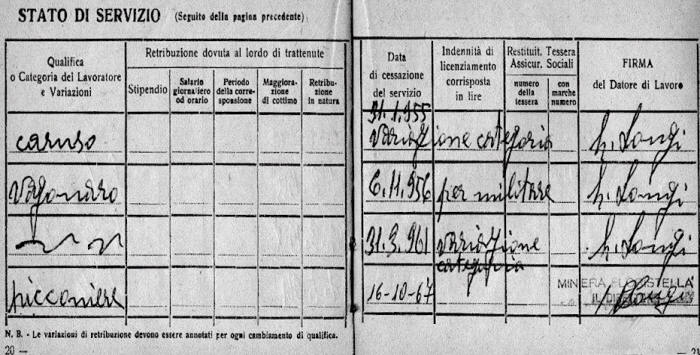 STATO DI SERVIZIO (Seguito della pagina precedente)
Qualifica
o Categoria del Lavoratore
e Variazioni
Retribuzione dovuta al lordo di trattenute
Stipendio
Salario
giornaliero
od orario
Periodo
della corre-
sponsione
Maggiora-
zione
di cottimo
Retribu-
zione
in natura
Data
di cessazione
del servizio
Indennità di
licenziamento
corrisposta
in lire
Restituit. Tessera
Assicur. Sociali
numero
della
tessera
con
marche
numero
FIRMA
del Datore di Lavoro
caruso
31.1.955
Variazione categoria
Longi
Vagonaro
6.11.956
per militare
Longi
31.3.961
variazione
categoria
Longi
picconiere
16-10-67
MINIERA
N. B. - Le variazioni di retribuzione devono essere annotati per ogni cambiamento di qualifica.
20 —
— 21